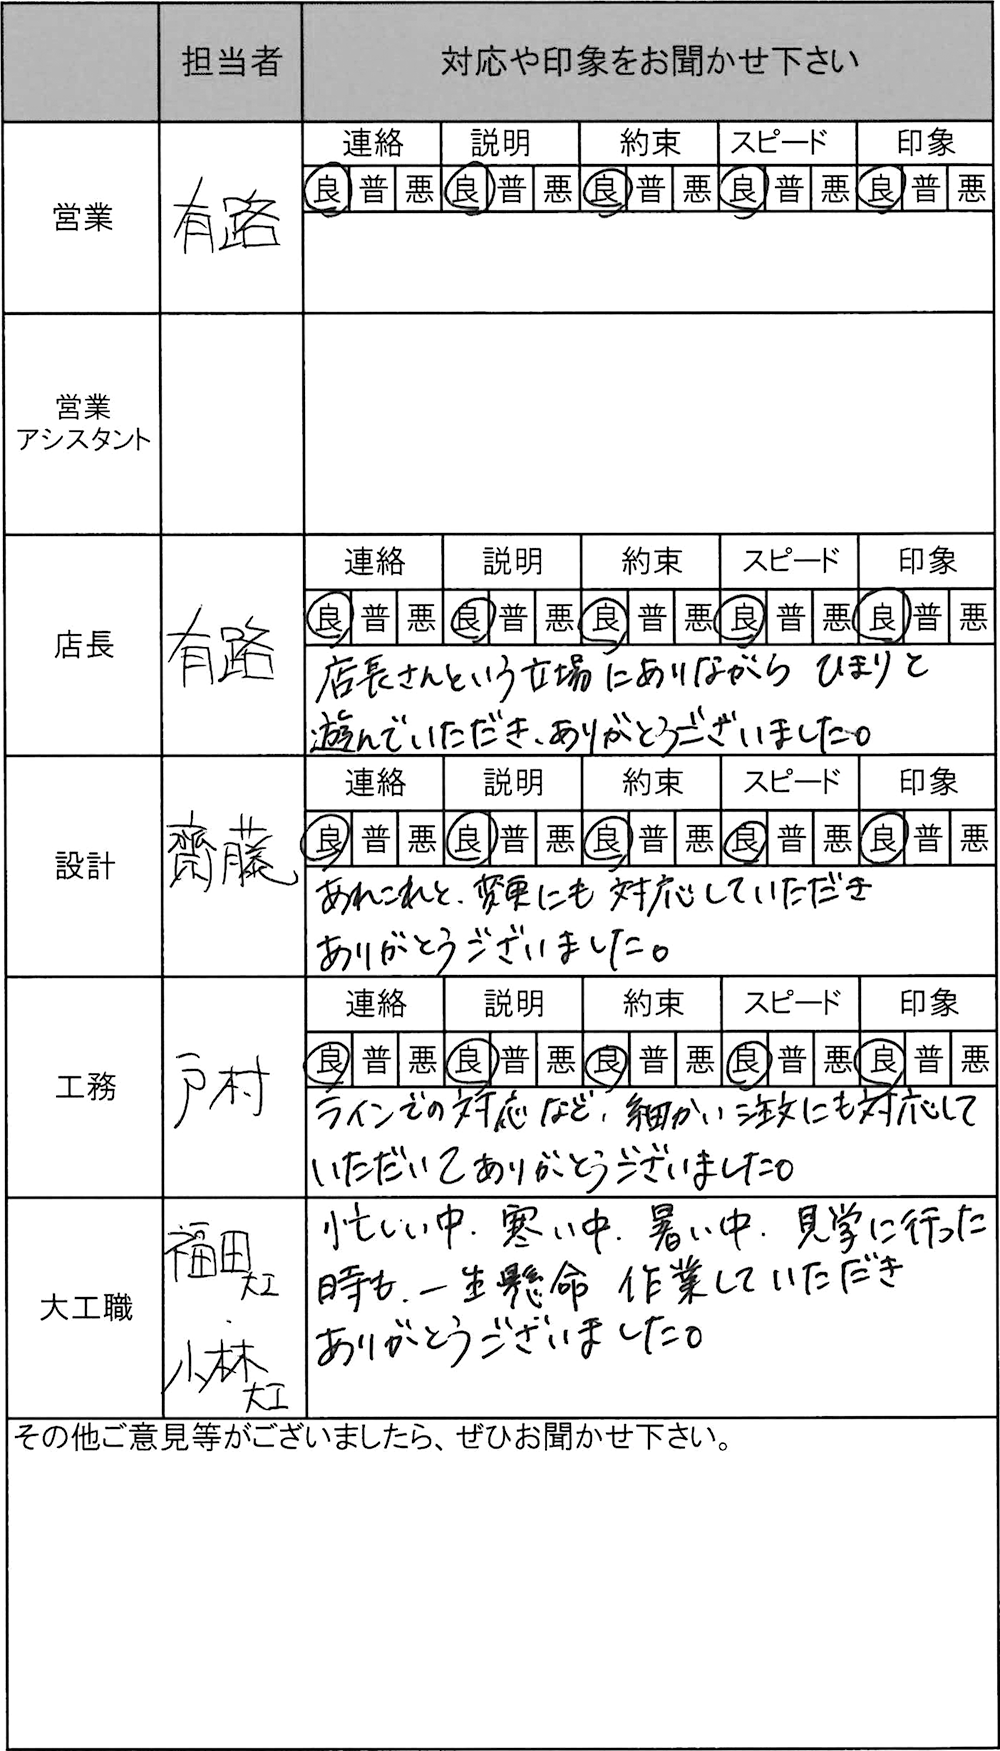 担当者 対応や印象をお聞かせ下さい
連絡 説明 約束 スピード 印象
良 普 悪 良 普 悪 良 普 悪 良 普 悪 良 普 悪
営業 有路
営業
アシスタント
連絡 説明 約束 スピード 印象
良 普 悪 良 普 悪 良 普 悪 良 普 悪 良 普 悪
店長 有路
店長さんという立場にありながら ひまりと
遊んでいただき、ありがとうございました。
連絡 説明 約束 スピード 印象
良 普 悪 良 普 悪 良 普 悪 良 普 悪 良 普 悪
設計 齋藤
あれこれと、変更にも対応していただき
ありがとうございました。
連絡 説明 約束 スピード 印象
良 普 悪 良 普 悪 良 普 悪 良 普 悪 良 普 悪
工務 戸村
ラインでの対応など、細かい注文にも対応して
いただいてありがとうございました。
大工職
福田大工
・
小林大工
忙しい中、寒い中、暑い中、見学に行った
時も、一生懸命 作業していただき
ありがとうございました。
その他ご意見等がございましたら、ぜひお聞かせ下さい。